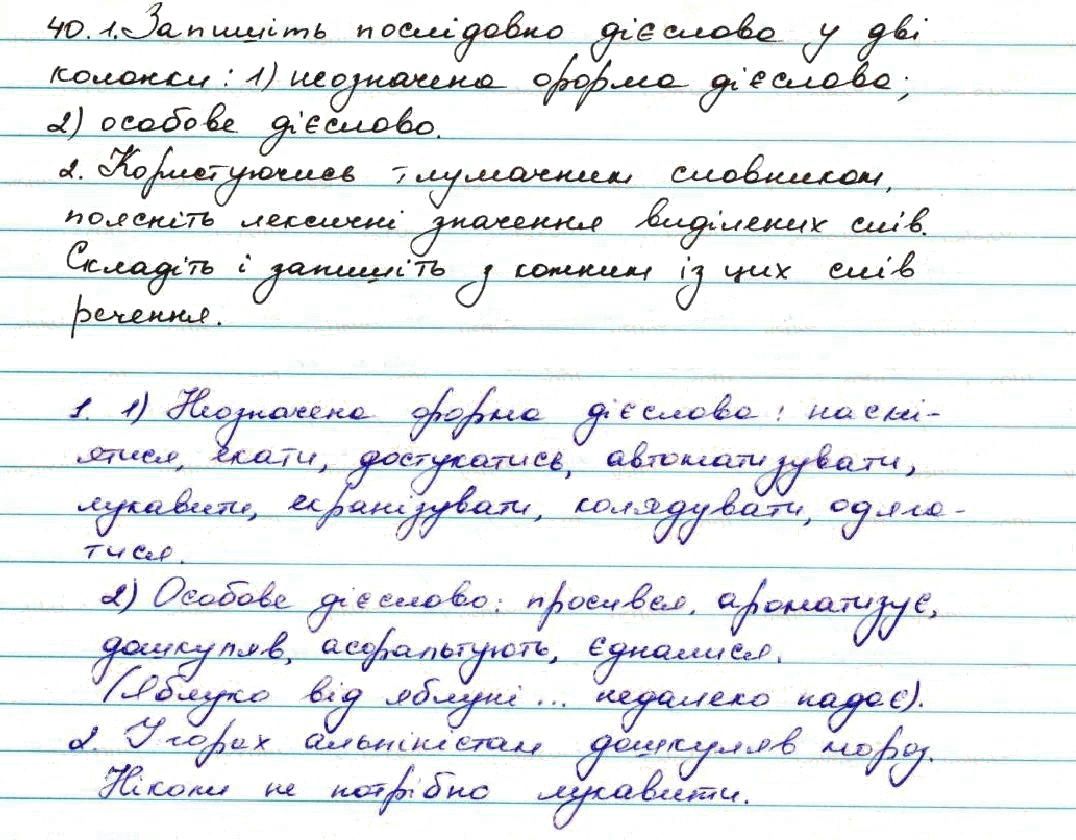 40. 1. Запишіть послідовно дієслова у дві
колонки: 1) неозначена форма дієслова;
2) особове дієслово.
2. Користуючись тлумачним словником,
поясніть лексичні значення виділених слів.
Складіть і запишіть з кожним із цих слів
речення.
1. 1) Неозначена форма дієслова: насмі-
ятися, якати, достукатись, автоматизувати,
лукавити, екранізувати, колядувати, одяга-
тися.
2) Особове дієслово: просився, ароматизує,
дошкуляв, асфальтують, єдналися.
(Яблуко від яблуні... недалеко падає).
2. У горах альпіністам дошкуляв мороз.
Ніколи не потрібно лукавити.